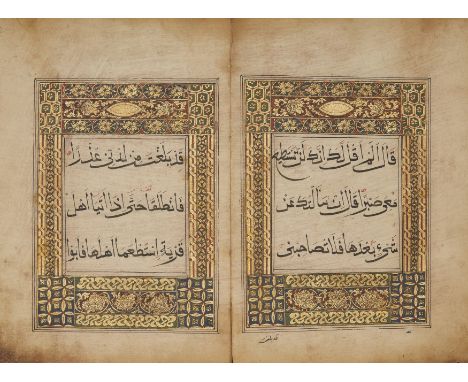 قال الم اقل لك انك لن تستطيع
معى صبرا قال ان سالتك عن
شىء بعدها فلا تصاحبنى
قد بلغت
قد بلغت من لدنى عذرا
فانطلقا حتى اذا اتيا اهل
قرية استطعما اهلها فابوا